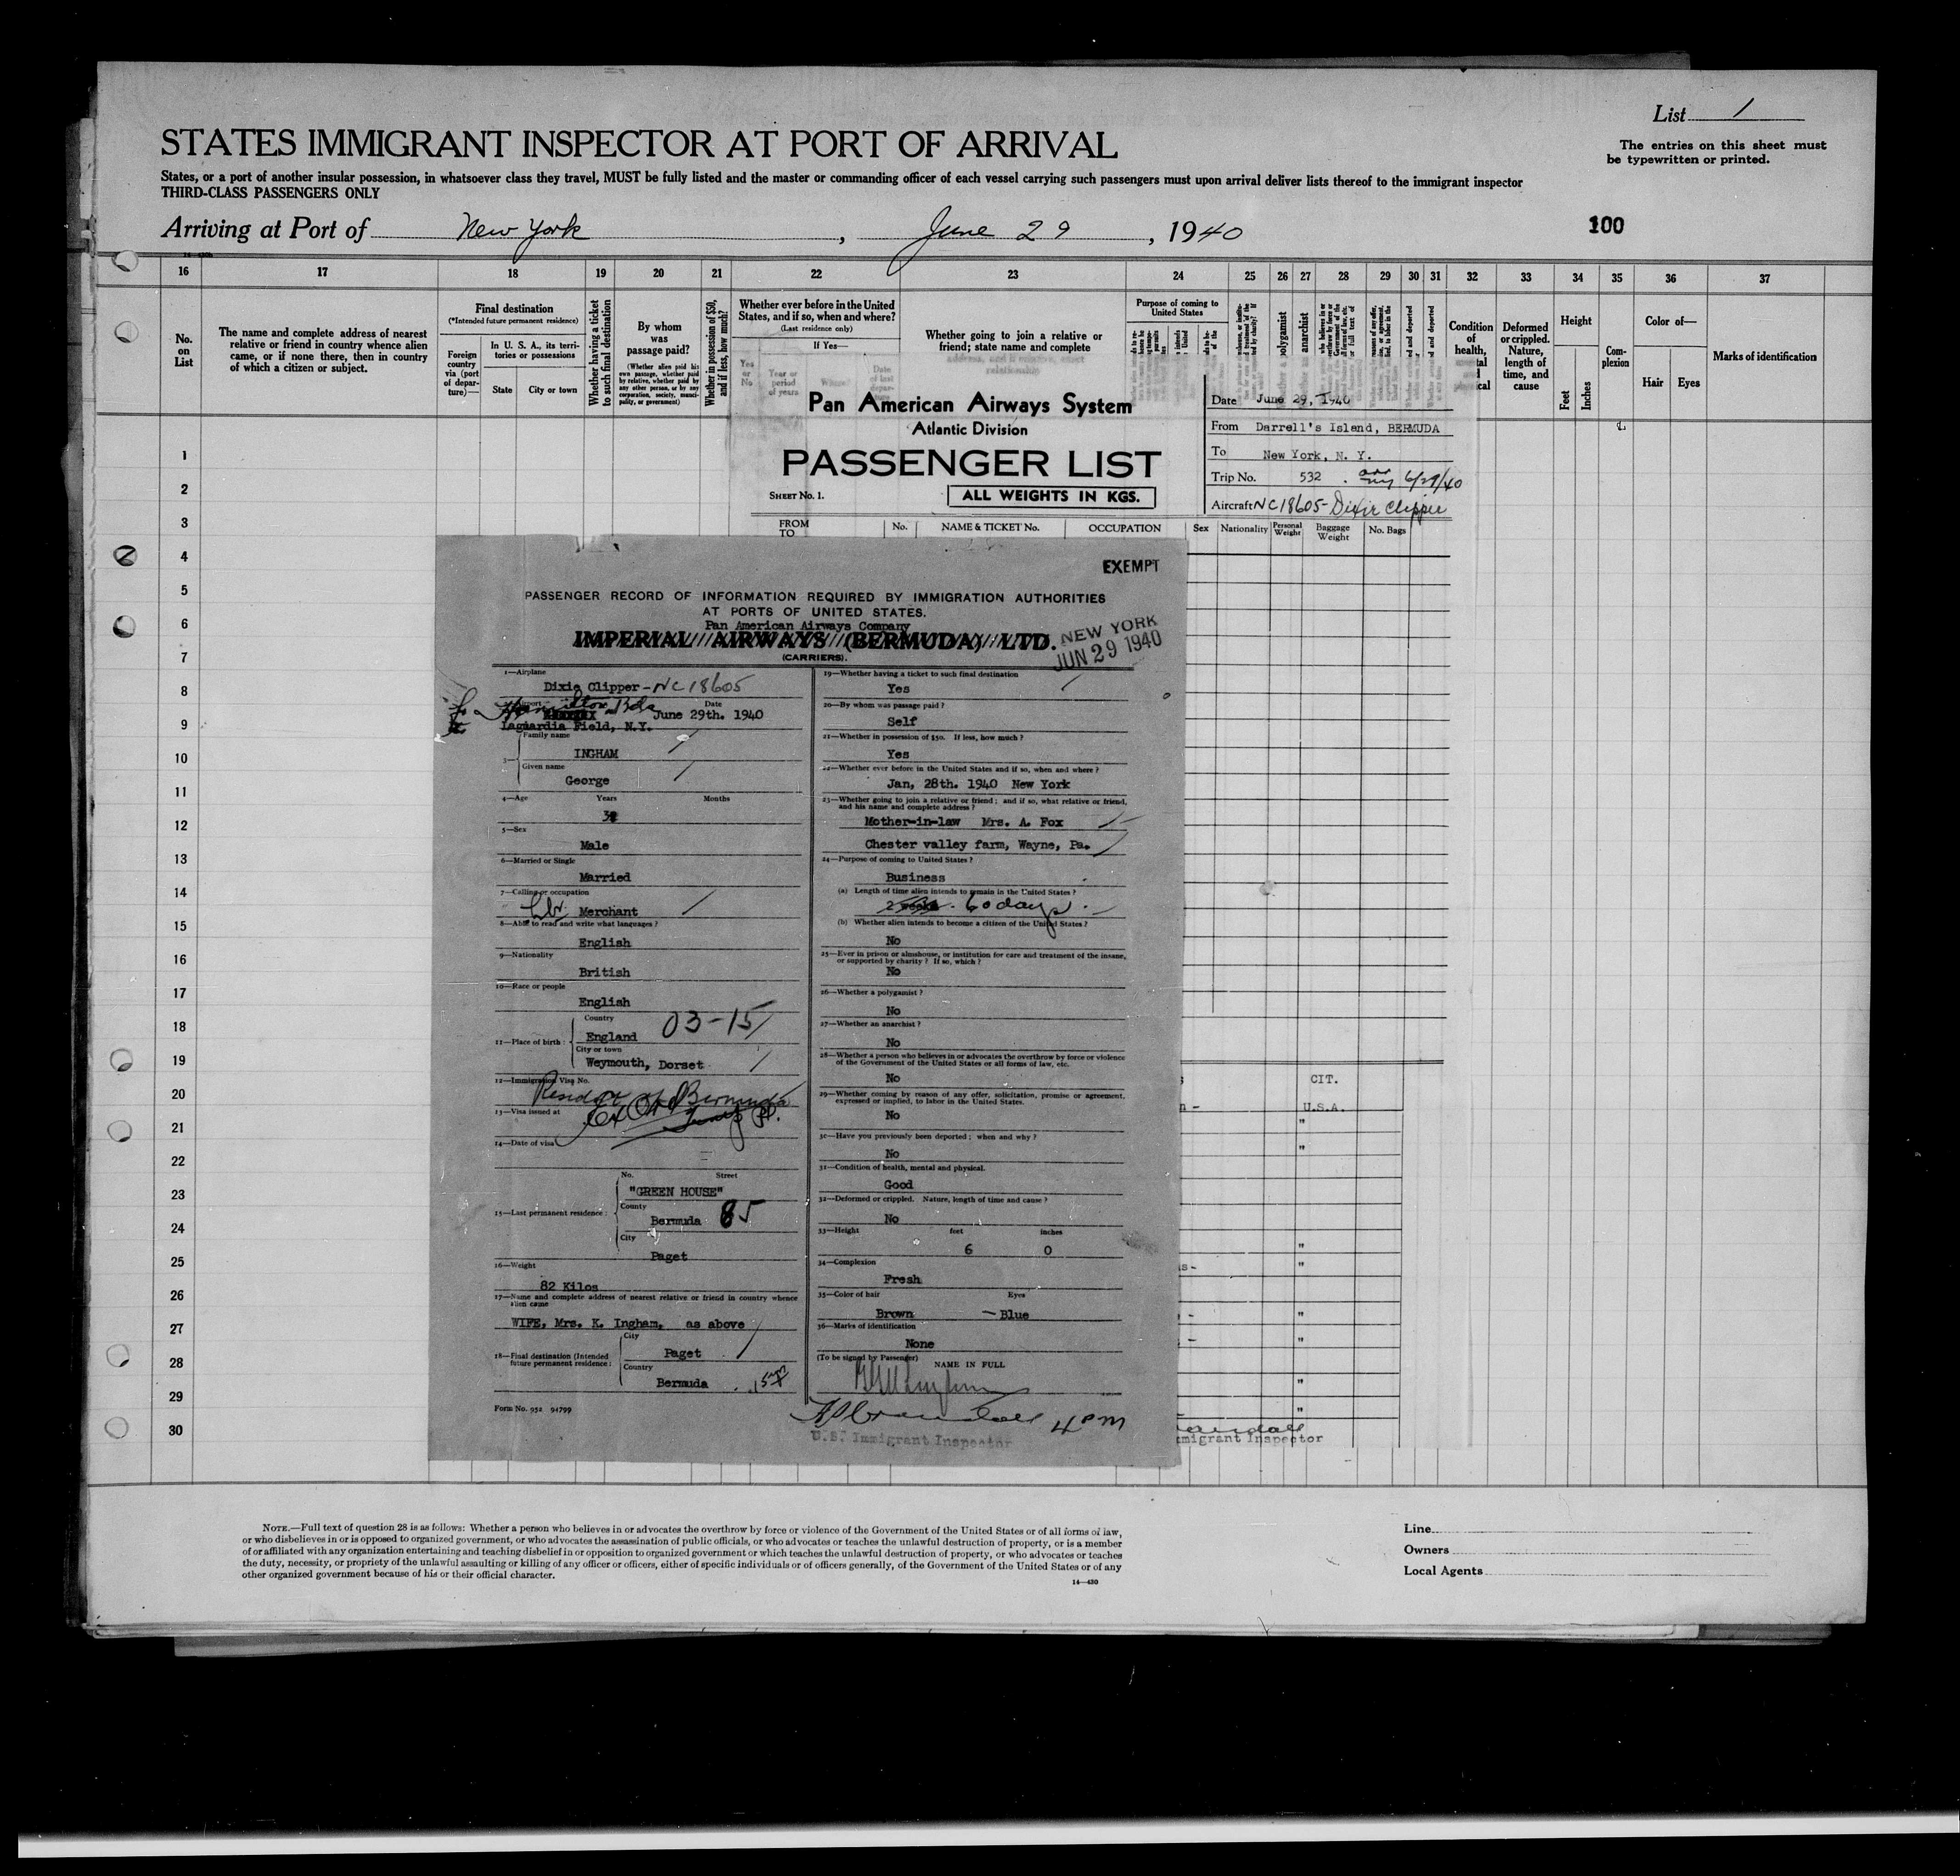 List 1
STATES IMMIGRANT INSPECTOR AT PORT OF ARRIVAL
The entries on this sheet must
be typewritten or printed.
States, or a port of another insular possession, in whatsoever class they travel, MUST be fully listed and the master or commanding officer of each vessel carrying such passengers must upon arrival deliver lists thereof to the immigrant inspector
THIRD-CLASS PASSENGERS ONLY
Arriving at Port of New York, June 29, 1940
100
16 17 18 19 20 21 22 23 24 25 26 27 28 29 30 31 32 33 34 35 36 37
No.
on
List
The name and complete address of nearest
relative or friend in country whence alien
came, or if none there, then in country
of which a citizen or subject.
Final destination
(*Intended future permanent residence)
Foreign
country
via (port
of depar-
ture)—
In U. S. A., its terri-
tories or possessions
State
City or town
Whether having a ticket
to such final destination
By whom
was
passage paid?
(Whether alien paid his
own passage, whether paid
by relative, whether paid
by any other person, or by any
corporation, society, munici-
pality, or government)
Whether in possession of $50,
and if less, how much?
Whether ever before in the United
States, and if so, when and where?
(Last residence only)
If Yes—
Yes
or
No
Year or
period
of years
Where?
Date
of last
depar-
ture
Whether going to join a relative or
friend; state name and complete
address, and if relative, exact
relationship
Purpose of coming to
United States
polygamist
anarchist
Condition
of
health,
Deformed
or crippled.
Nature,
length of
time, and
cause
Height
Feet
Inches
Com-
plexion
Color of—
Hair
Eyes
Marks of identification
1
2
3
4
5
6
7
8
9
10
11
12
13
14
15
16
17
18
19
20
21
22
23
24
25
26
27
28
29
30
Pan American Airways System
Atlantic Division
PASSENGER LIST
SHEET No. 1.
ALL WEIGHTS IN KGS.
Date June 29, 1940
From Darrell's Island, BERMUDA
To New York, N. Y.
Trip No. 532 . 6/29/40
Aircraft NC18605-Dixie Clipper
FROM
TO
No.
NAME & TICKET No.
OCCUPATION
Sex
Nationality
Personal
Weight
Baggage
Weight
No. Bags
EXEMPT
PASSENGER RECORD OF INFORMATION REQUIRED BY IMMIGRATION AUTHORITIES
AT PORTS OF UNITED STATES.
Pan American Airways Company
IMPERIAL AIRWAYS (BERMUDA) LTD.
(CARRIERS).
NEW YORK
JUN 29 1940
1—Airplane
Dixie Clipper - NC18605
Airport Date
Hamilton Bda June 29th. 1940
Laguardia Field, N.Y.
3—
Family name
INGHAM
Given name
George
4—Age Years Months
5—Sex
Male
6—Married or Single
Married
7—Calling or occupation
Merchant
8—Able to read and write what languages?
English
9—Nationality
British
10—Race or people
English
11—Place of birth:
Country
England 03-15
City or town
Weymouth, Dorset
12—Immigration Visa No.
Resident of Bermuda
13—Visa issued at
14—Date of visa
15—Last permanent residence:
No. Street
"GREEN HOUSE"
County
Bermuda 85
City
Paget
16—Weight
82 Kilos
17—Name and complete address of nearest relative or friend in country whence
alien came
WIFE, Mrs. K. Ingham, as above
18—Final destination (Intended
future permanent residence:
City
Paget
Country
Bermuda
Form No. 952 94799
19—Whether having a ticket to such final destination
Yes
20—By whom was passage paid?
Self
21—Whether in possession of $50. If less, how much?
Yes
22—Whether ever before in the United States and if so, when and where?
Jan, 28th. 1940 New York
23—Whether going to join a relative or friend; and if so, what relative or friend,
and his name and complete address?
Mother-in-law Mrs. A. Fox
Chester valley farm, Wayne, Pa.
24—Purpose of coming to United States?
Business
(a) Length of time alien intends to remain in the United States?
2 weeks. 60 days.
(b) Whether alien intends to become a citizen of the United States?
No
25—Ever in prison or almshouse, or institution for care and treatment of the insane,
or supported by charity? If so, which?
No
26—Whether a polygamist?
No
27—Whether an anarchist?
No
28—Whether a person who believes in or advocates the overthrow by force or violence
of the Government of the United States or all forms of law, etc.
No
29—Whether coming by reason of any offer, solicitation, promise or agreement,
expressed or implied, to labor in the United States.
No
30—Have you previously been deported; when and why?
No
31—Condition of health, mental and physical.
Good
32—Deformed or crippled. Nature, length of time and cause?
No
33—Height feet inches
6 0
34—Complexion
Fresh
35—Color of hair Eyes
Brown — Blue
36—Marks of identification
None
(To be signed by Passenger)
NAME IN FULL
4 PM
U.S. Immigrant Inspector
CIT.
U.S.A.
"
"
"
"
"
"
"
"
migrant Inspector
NOTE.—Full text of question 28 is as follows: Whether a person who believes in or advocates the overthrow by force or violence of the Government of the United States or of all forms of law,
or who disbelieves in or is opposed to organized government, or who advocates the assassination of public officials, or who advocates or teaches the unlawful destruction of property, or is a member
of or affiliated with any organization entertaining and teaching disbelief in or opposition to organized government or which teaches the unlawful destruction of property, or who advocates or teaches
the duty, necessity, or propriety of the unlawful assaulting or killing of any officer or officers, either of specific individuals or of officers generally, of the Government of the United States or of any
other organized government because of his or their official character.
14—430
Line
Owners
Local Agents